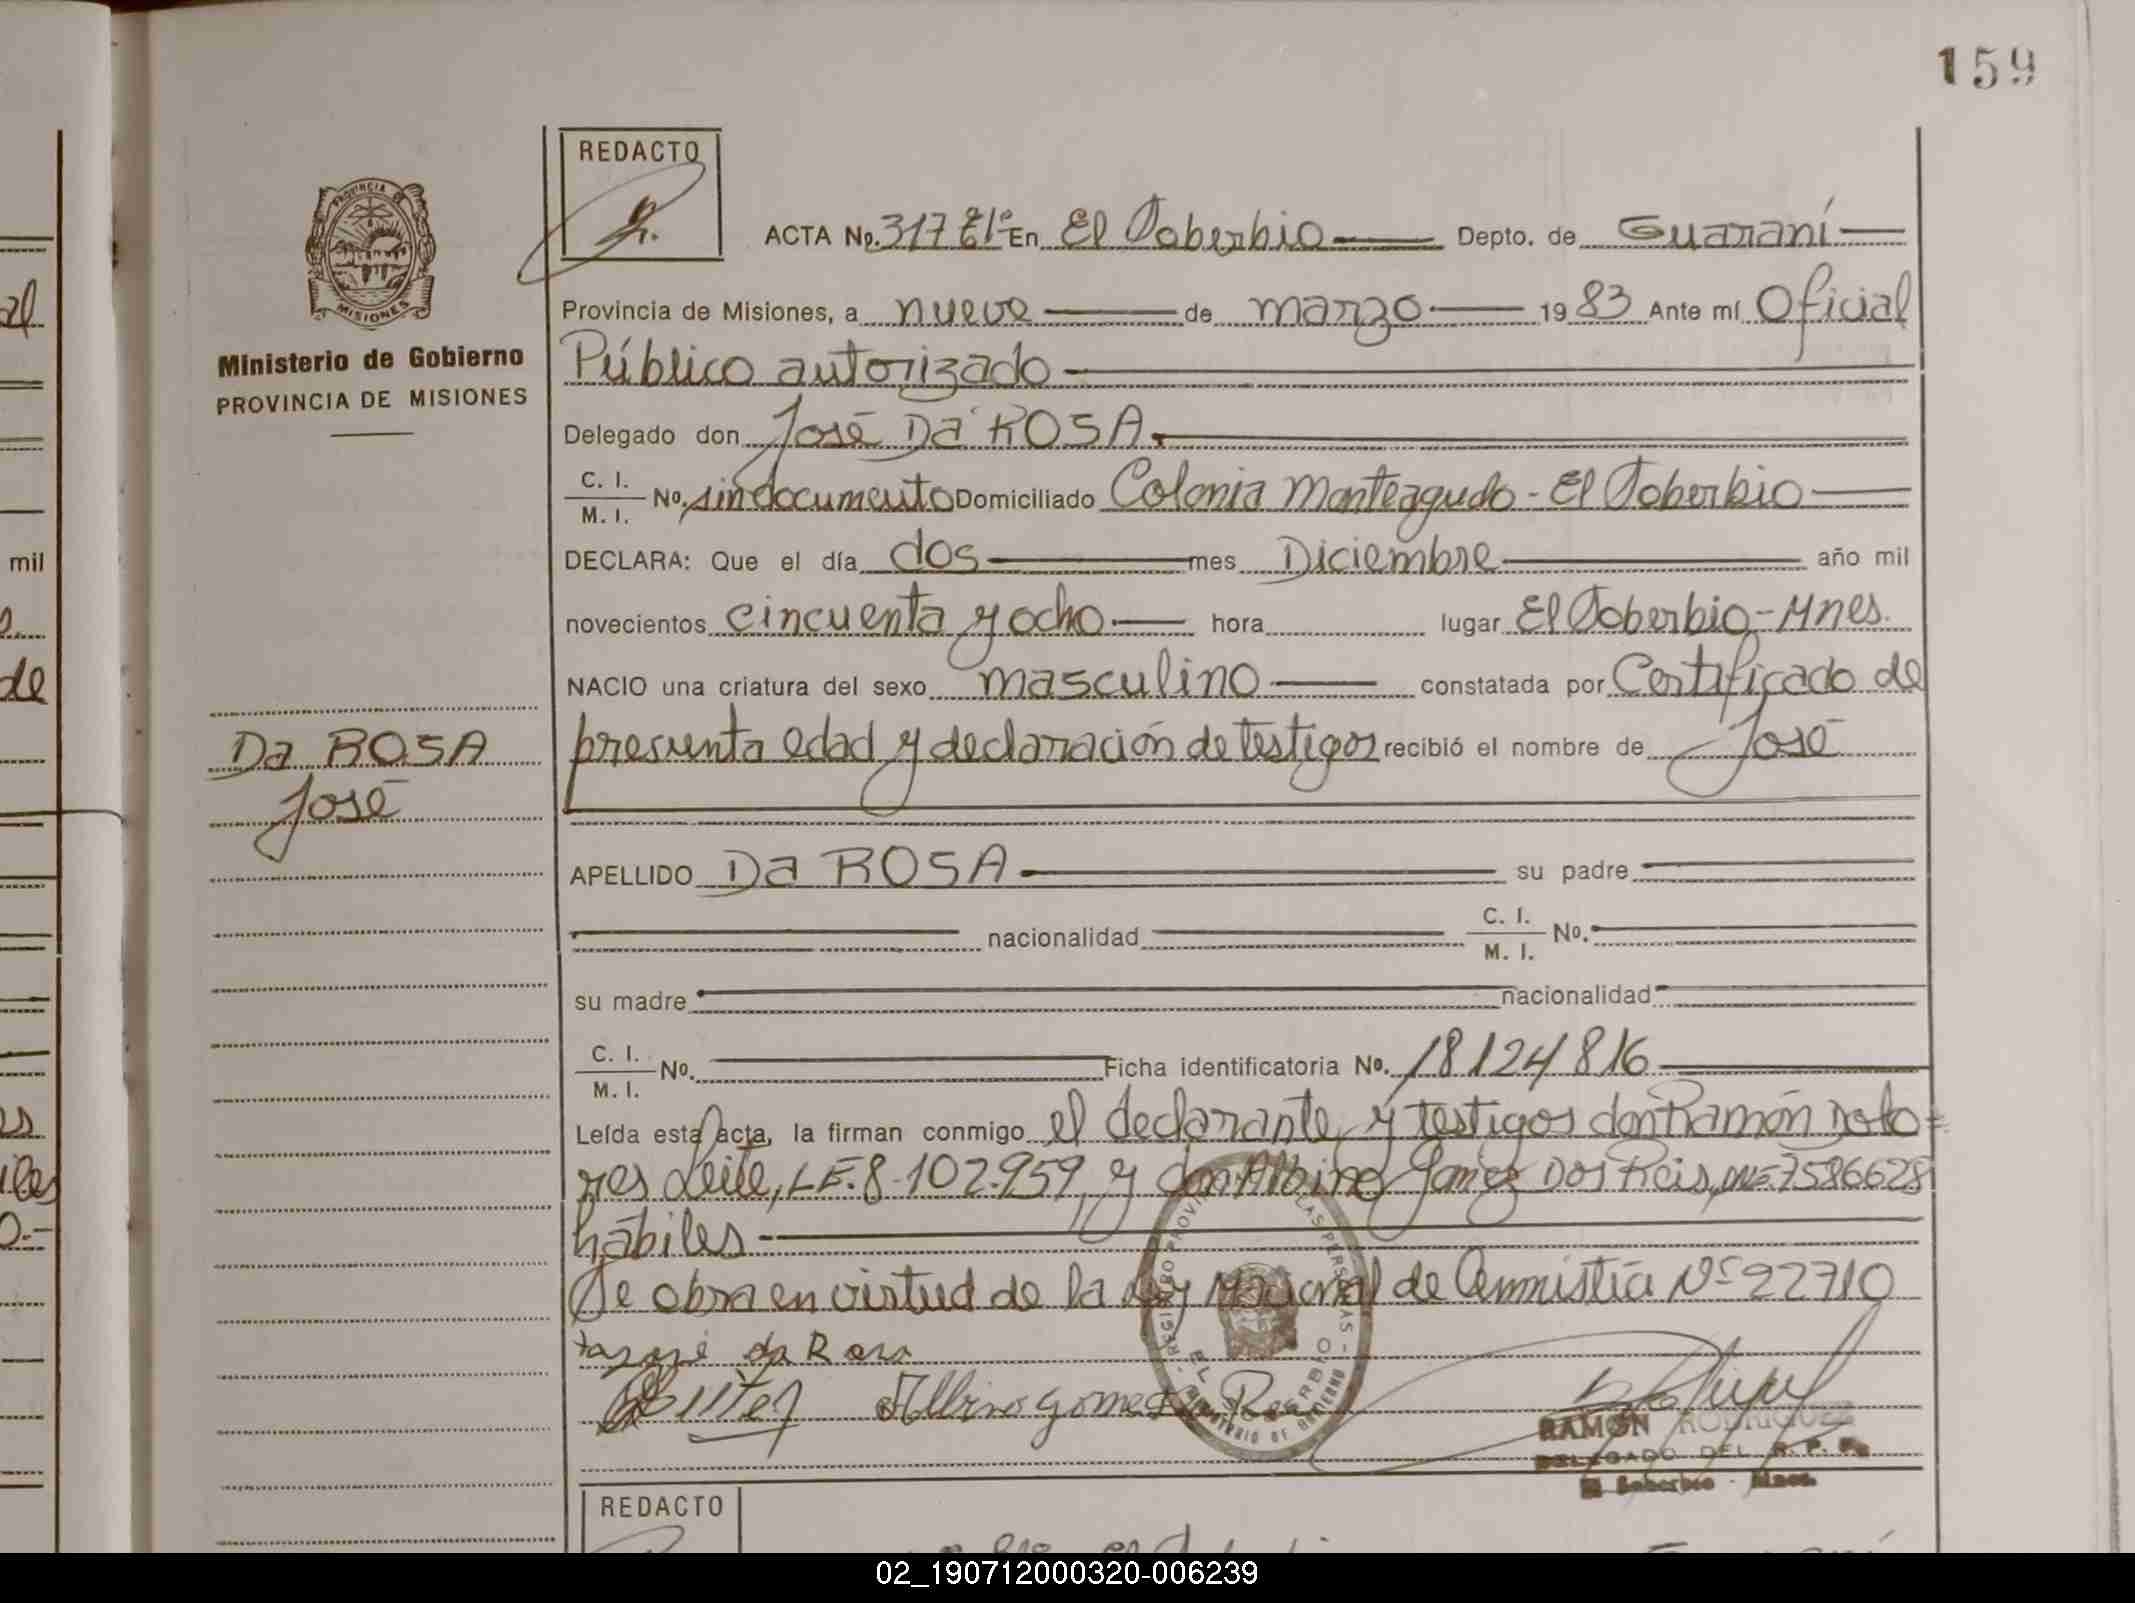 159
REDACTO
ACTA No. 317 En El Soberbio Depto. de Guaraní
PROVINCIA
MISIONES
Provincia de Misiones, a nueve de marzo 1983 Ante mí Oficial
Ministerio de Gobierno
PROVINCIA DE MISIONES
Público autorizado
Delegado don José Da ROSA.
C. I.
M. I. No. sin documento Domiciliado Colonia Monteagudo - El Soberbio
DECLARA: Que el día dos mes Diciembre año mil
novecientos cincuenta y ocho hora lugar El Soberbio - Mnes.
NACIO una criatura del sexo masculino constatada por Certificado de
presunta edad y declaración de testigos recibió el nombre de José
Da ROSA
José
APELLIDO Da ROSA su padre
nacionalidad C. I.
M. I. No.
su madre nacionalidad
C. I.
M. I. No. Ficha identificatoria No. 18124816
Leída esta acta, la firman conmigo el declarante y testigos don Ramón Dolo=
res Leite, LE. 8.102.959, y don Albino Gomez Dos Reis, 7586628
hábiles
Se obra en virtud de la Ley Nacional de Amnistía Nº 22710
da Rosa
Albino gomes Reis
RAMÓN RODRIGUEZ
DELEGADO DEL R. P. P.
El Soberbio - Mnes.
REDACTO
mil
de
02_190712000320-006239